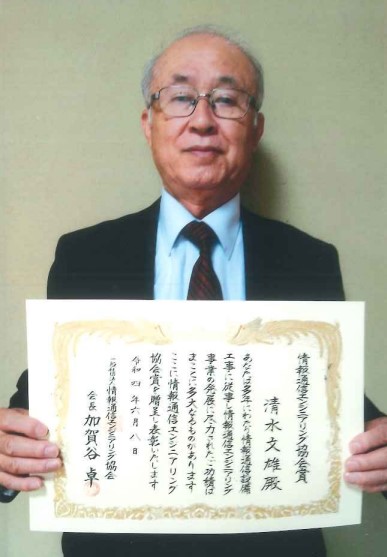 情報通信エンジニアリング協会賞
清水文雄殿
あなたは多年にわたり情報通信設備
工事に従事し情報通信エンジニアリング
事業の発展に尽力された功績は
まことに多大なるものがあります
ここに情報通信エンジニアリング
協会賞を贈呈し表彰いたします
令和四年六月八日
情報通信エンジニアリング協会
会長 加賀谷卓